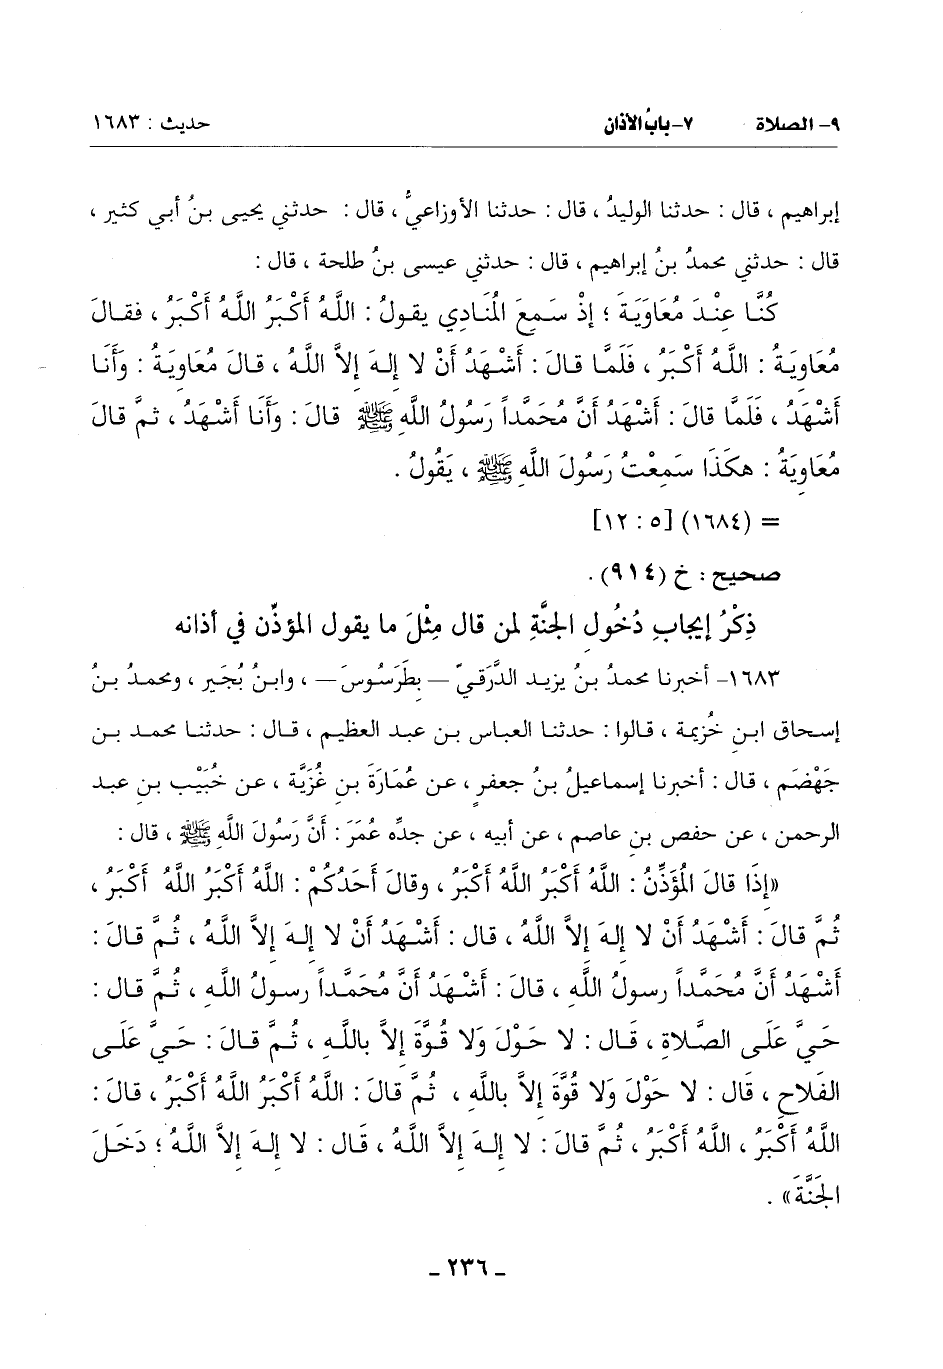 ٩- الصلاة ٧- بابُ الأذان حديث : ١٦٨٣
إبراهيم ، قال : حدثنا الوليدُ ، قال : حدثنا الأوزاعيُّ ، قال : حدثني يحيى بنُ أبي كثير ،
قال : حدثني محمدُ بنُ إبراهيم ، قال : حدثني عيسى بنُ طلحة ، قال :
كُنَّا عِنْدَ مُعَاوَيَةَ ؛ إذْ سَمِعَ المُنَادِي يقولُ : اللَّهُ أَكْبَرُ اللَّهُ أَكْبَرُ ، فقالَ
مُعَاوِيَةُ : اللَّهُ أَكْبَرُ ، فَلَمَّا قالَ : أَشْهَدُ أَنْ لا إلهَ إلاَّ اللَّهُ ، قالَ مُعَاوِيَةُ : وَأَنَا
أَشْهَدُ ، فَلَمَّا قالَ : أَشْهَدُ أَنَّ مُحَمَّداً رَسُولُ اللَّهِ ﷺ قالَ : وَأَنا أَشْهَدُ ، ثمَّ قالَ
مُعَاوِيَةُ : هكَذَا سَمِعْتُ رَسُولَ اللَّهِ ﷺ ، يَقُولُ .
= (١٦٨٤) [٥ : ١٢]
صحيح : خ (٩١٤) .
ذِكْرُ إيجابِ دُخُولِ الجنَّةِ لمن قال مِثْلَ ما يقول المؤذِّن في أذانه
١٦٨٣- أخبرنا محمدُ بنُ يزيد الدَّرَقيّ – بطَرَسُوسَ – ، وابنُ بُجَير ، ومحمدُ بنُ
إسحاق ابن خُزيمة ، قالوا : حدثنا العباس بن عبد العظيم ، قال : حدثنا محمد بن
جَهْضَم ، قال : أخبرنا إسماعيلُ بنُ جعفرٍ ، عن عُمَارَةَ بنِ غُزَيَّة ، عن خُبَيْب بن عبد
الرحمن ، عن حفصِ بن عاصم ، عن أبيه ، عن جدِّه عُمَرَ : أنَّ رَسُولَ اللَّهِ ﷺ ، قال :
«إذَا قالَ المُؤَذِّنُ : اللَّهُ أَكْبَرُ اللَّهُ أَكْبَرُ ، وقالَ أَحَدُكُمْ : اللَّهُ أَكْبَرُ اللَّهُ أَكْبَرُ ،
ثُمَّ قالَ : أَشْهَدُ أَنْ لا إلهَ إلاَّ اللَّهُ ، قال : أَشْهَدُ أَنْ لا إلهَ إلاَّ اللَّهُ ، ثُمَّ قالَ :
أَشْهَدُ أَنَّ مُحَمَّداً رسولُ اللَّهِ ، قالَ : أَشْهَدُ أَنَّ مُحَمَّداً رسولُ اللَّهِ ، ثُمَّ قال :
حَيَّ عَلَى الصَّلاةِ ، قَال : لا حَوْلَ وَلا قُوَّةَ إلاَّ باللَّهِ ، ثُمَّ قالَ : حَيَّ عَلَى
الفَلاحِ ، قَال : لا حَوْلَ وَلا قُوَّةَ إلاَّ باللَّهِ ، ثُمَّ قالَ : اللَّهُ أَكْبَرُ اللَّهُ أَكْبَرُ ، قالَ :
اللَّهُ أَكْبَرُ ، اللَّهُ أَكْبَرُ ، ثُمَّ قالَ : لا إلهَ إلاَّ اللَّهُ ، قَال : لا إلهَ إلاَّ اللَّهُ ؛ دَخَلَ
الجَنَّةَ» .
ـ ٢٣٦ ـ